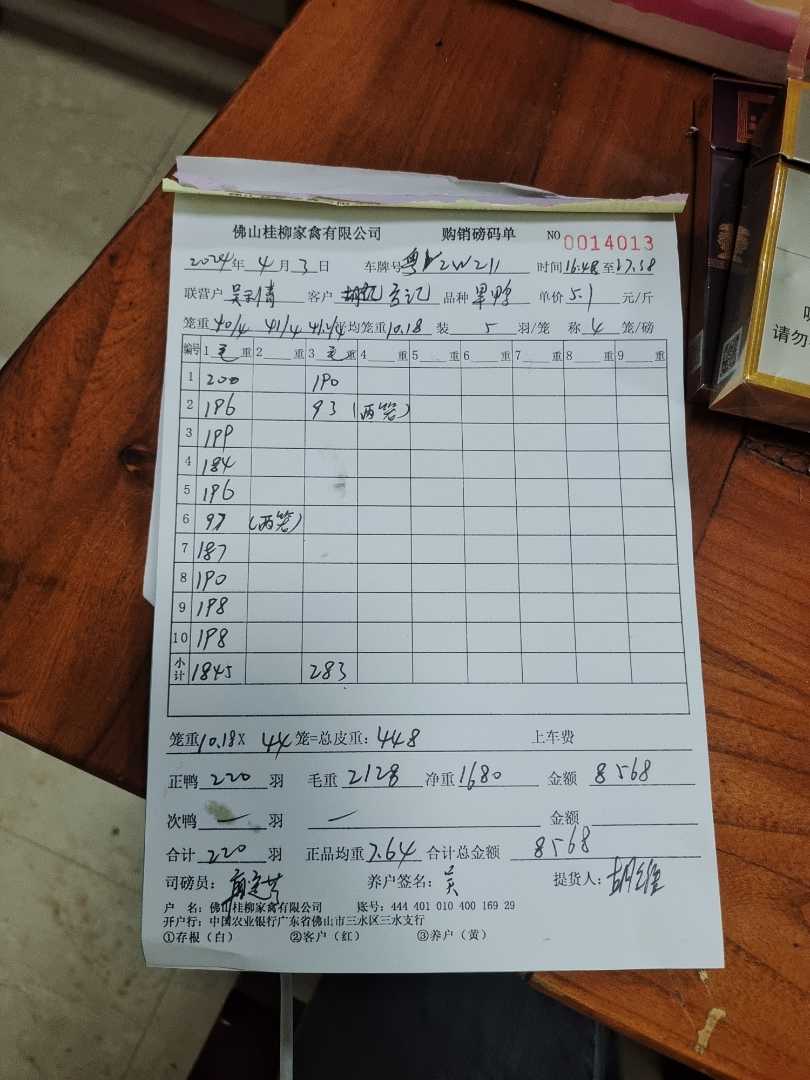 佛山桂柳家禽有限公司 购销磅码单 NO 0014013
2024年4月3日 车牌号粤 2W211 时间16:48至17:58
联营户 吴 倩 客户 记 品种 单价5.1元/斤
笼重40/4 41/4 41.2/4 平均笼重10.18 装5羽/笼 称4笼/磅
编号 1毛重 2 重 3毛重 4 重 5 重 6 重 7 重 8 重 9 重
1 200 190
2 196 93(两笼)
3 199
4 184
5 196
6 97(两笼)
7 187
8 190
9 198
10 198
小计 1845 283
笼重10.18X 44笼=总皮重:448 上车费
正鸭220羽 毛重2128 净重1680 金额8568
次鸭—羽 — 金额
合计220羽 正品均重7.64 合计总金额8568
司磅员: 养户签名:吴 提货人:胡
户 名:佛山桂柳家禽有限公司 账号:444 401 010 400 169 29
开户行:中国农业银行广东省佛山市三水区三水支行
①存根(白) ②客户(红) ③养户(黄)
请勿